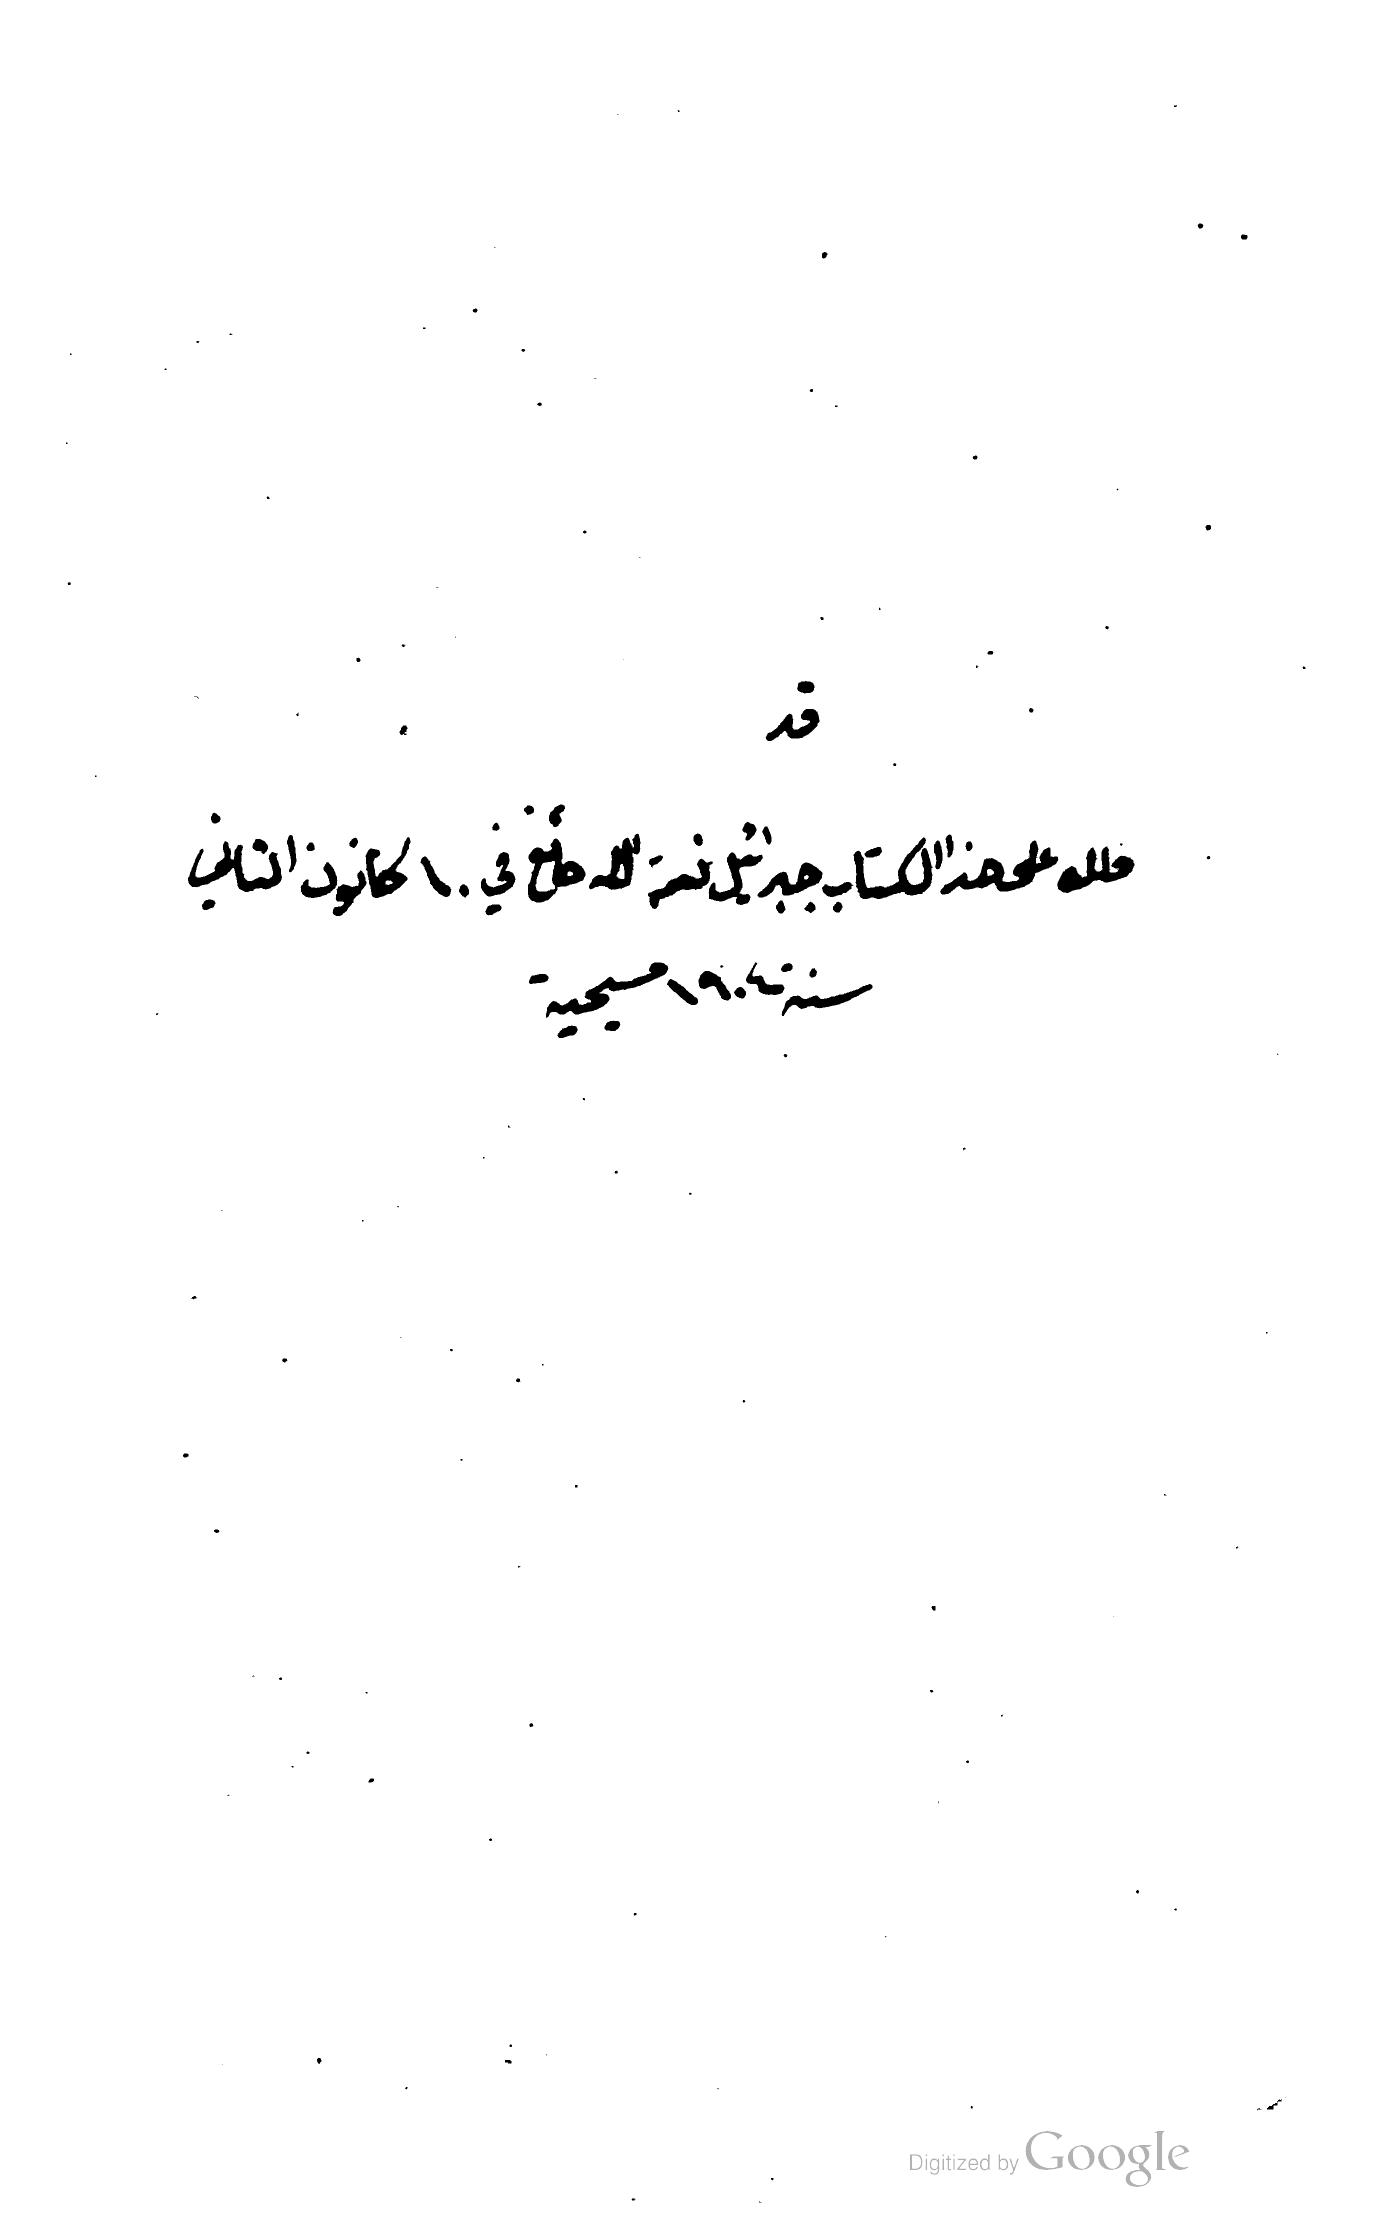 قد
ملك على هذا الكتاب جبرائيل نعمة الله في ١٠ كانون الثاني
سنة ١٩٠٤ مسيحية
Digitized by Google